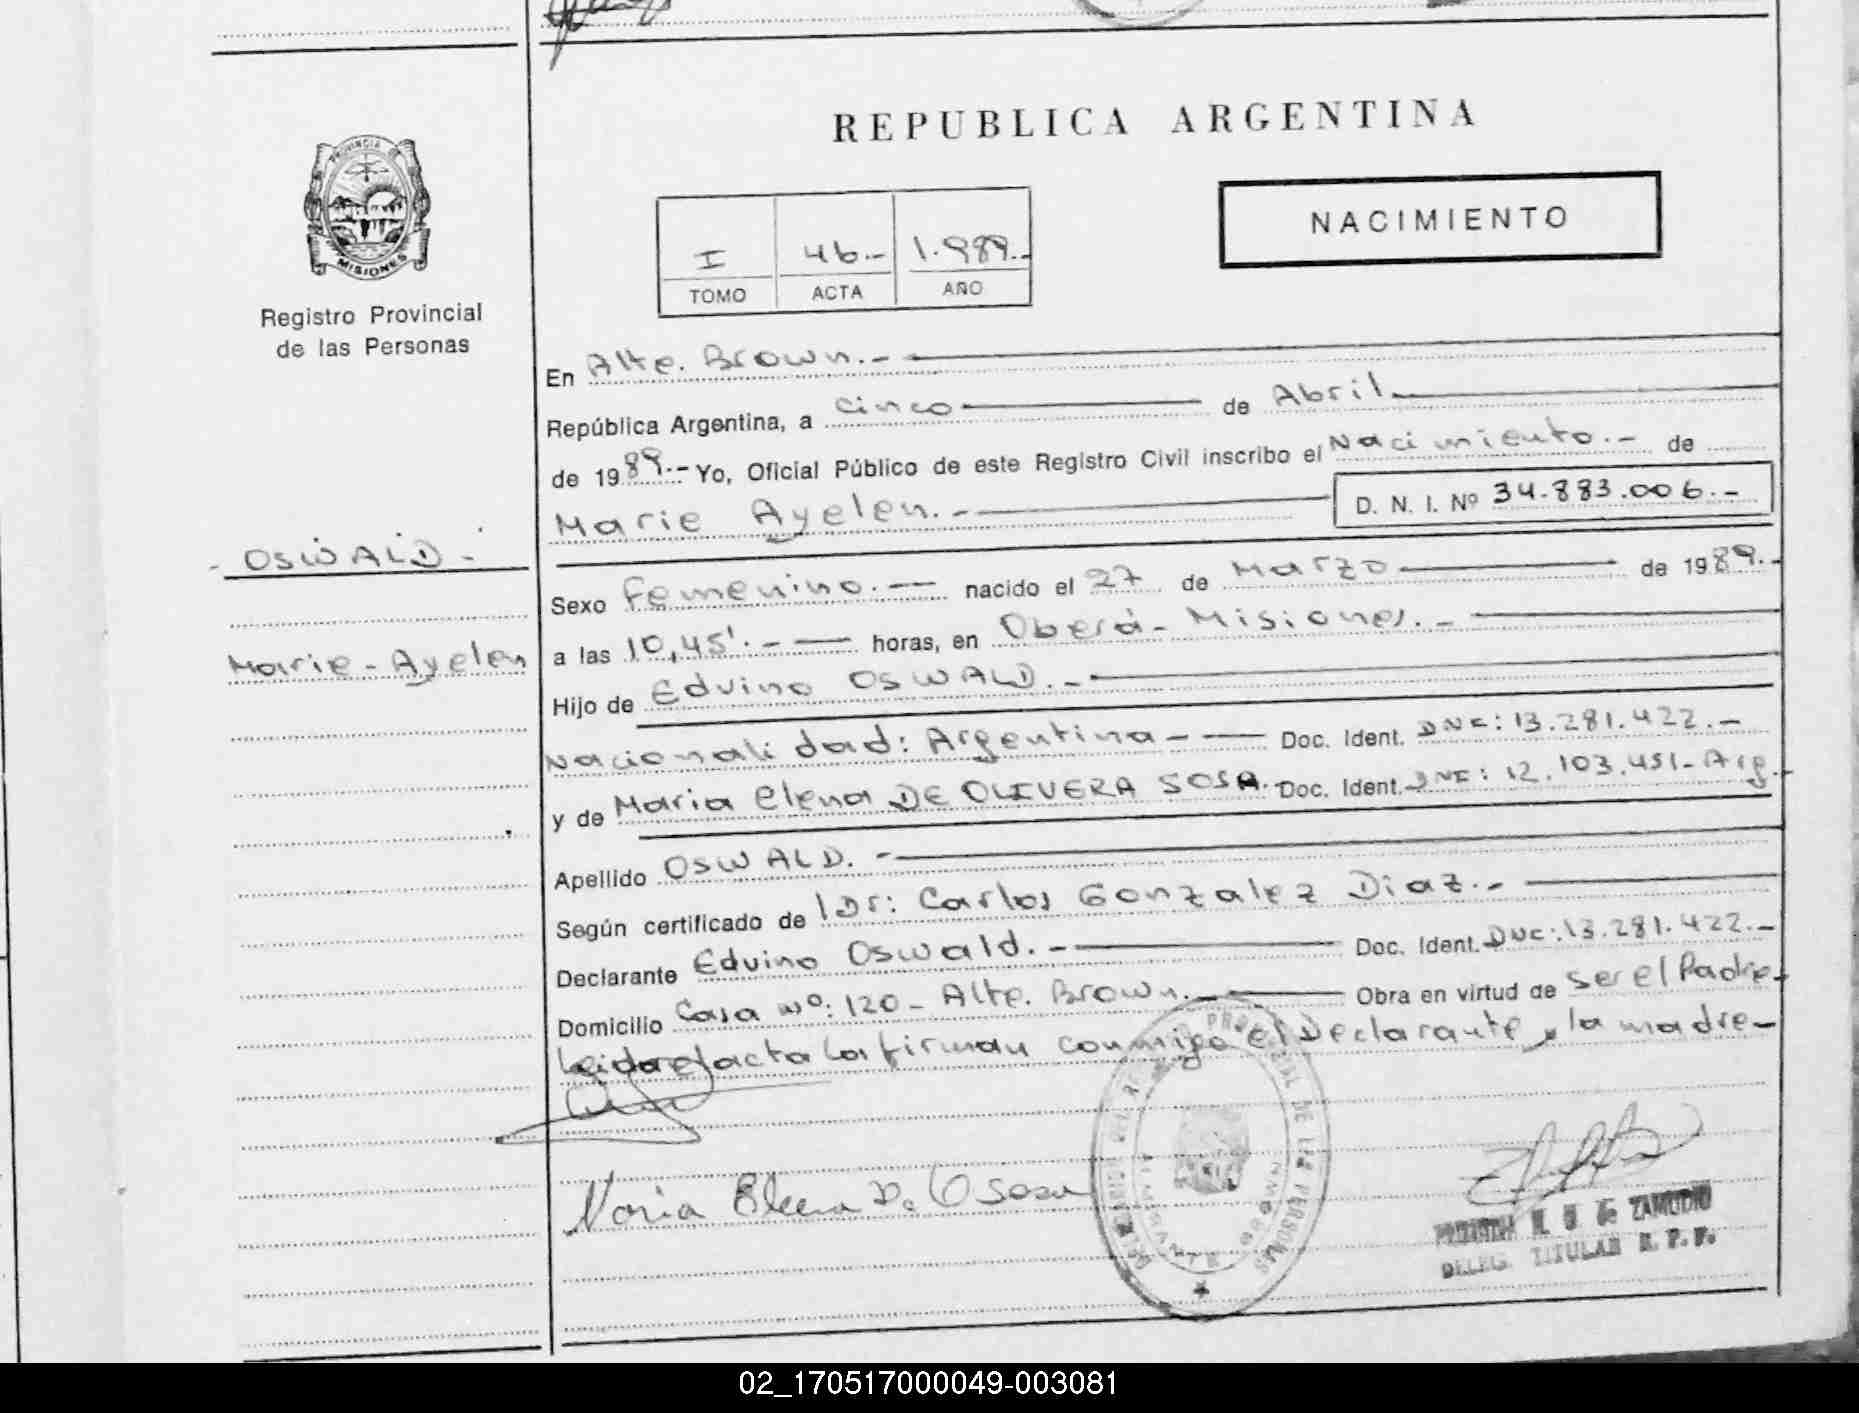 REPUBLICA ARGENTINA
PROVINCIA DE
MISIONES
Registro Provincial
de las Personas
I 46.- 1.989.-
TOMO ACTA AÑO
NACIMIENTO
En Alte. Brown.-
República Argentina, a cinco de Abril
de 1989.- Yo, Oficial Público de este Registro Civil inscribo el Nacimiento.- de
Marie Ayelen.- D. N. I. Nº 34.883.006.-
- OSWALD.-
Marie-Ayelen
Sexo Femenino.- nacido el 27 de Marzo de 1989.-
a las 10,45'.- horas, en Oberá- Misiones.-
Hijo de Edvino OSWALD.-
Nacionalidad: Argentina- Doc. Ident. DNI: 13.281.422.-
y de Maria Elena DE OLIVERA SOSA.- Doc. Ident. DNI: 12.103.451- Arg.
Apellido OSWALD.-
Según certificado de Dr: Carlos Gonzalez Diaz.-
Declarante Edvino Oswald.- Doc. Ident. DNI: 13.281.422.-
Domicilio Casa Nº: 120- Alte. Brown.- Obra en virtud de ser el Padre-
Leida el acta la firman conmigo el Declarante y la madre-
Maria Elena D. O Sosa
DE LAS PERSONAS
de ZAMUDIO
DELEG. TITULAR R. P. P.
02_170517000049-003081